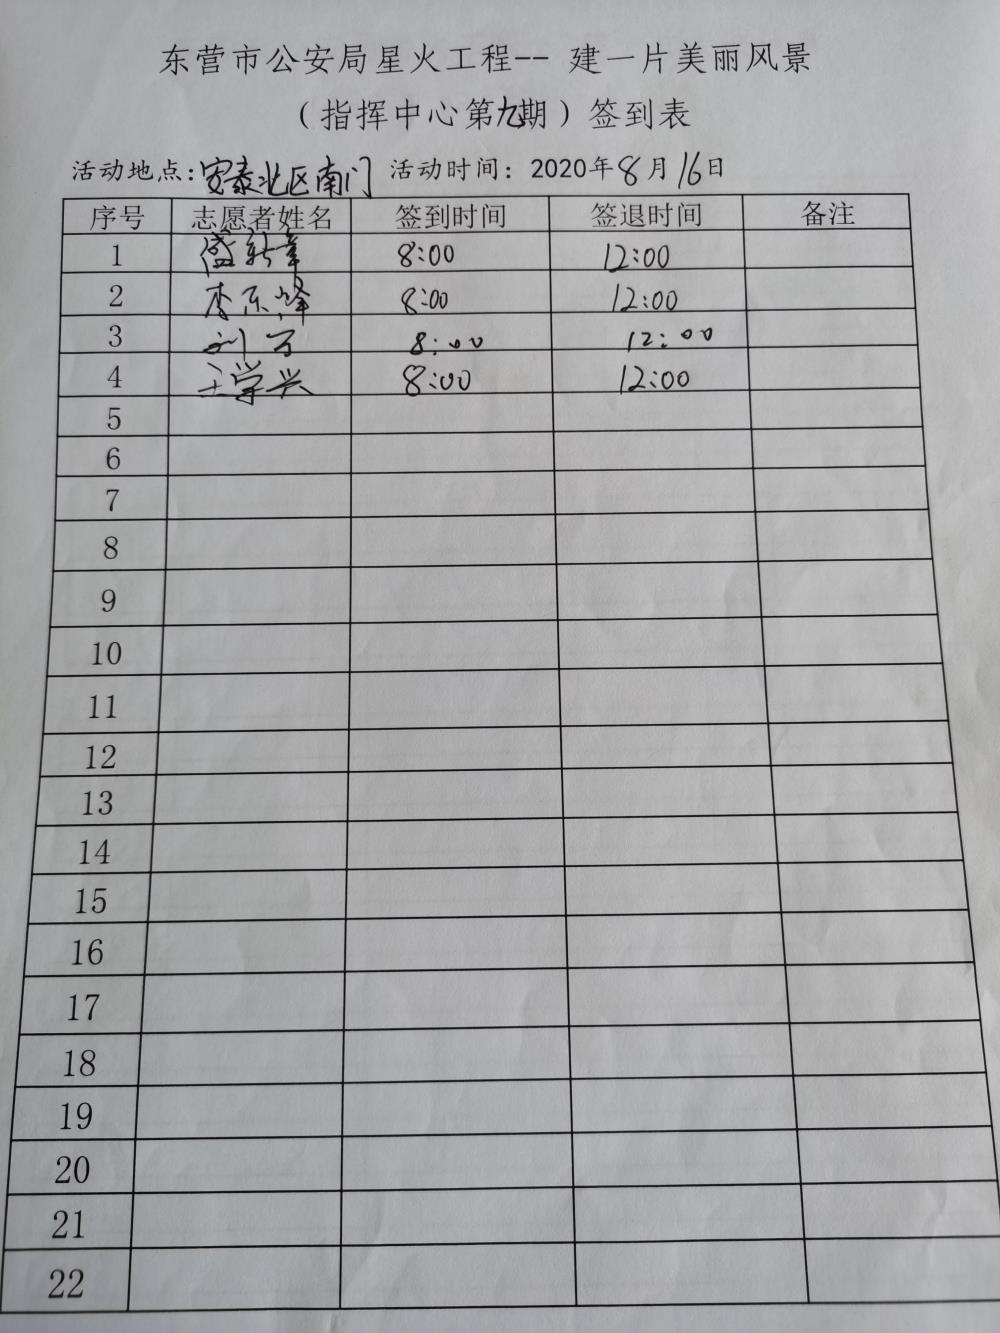 东营市公安局星火工程-- 建一片美丽风景
（指挥中心第九期）签到表
活动地点：安泰北区南门 活动时间：2020年8月16日
序号 志愿者姓名 签到时间 签退时间 备注
1 盛新华 8:00 12:00
2 李东峰 8:00 12:00
3 刘万 8:00 12:00
4 王学兴 8:00 12:00
5
6
7
8
9
10
11
12
13
14
15
16
17
18
19
20
21
22